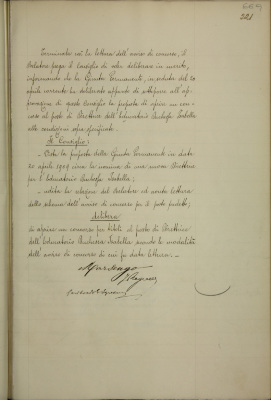 221
Terminata così la lettura dell'avviso di concorso, il
Relatore prega il Consiglio di voler deliberare in merito,
informando che la Giunta Permanente, in seduta del 20
aprile corrente ha deliberato appunto di sottoporre all'ap-
provazione di questo Consiglio la proposta di aprire un con-
corso al posto di Direttrice dell'Educatorio Principessa Isabella
alle condizioni sopra specificate.
Il Consiglio:
- Vista la proposta della Giunta Permanente in data
20 aprile 1909 circa la nomina di una nuova Direttrice
per l'Educatorio Isabella;
- udita la relazione del Relatore ed anche lettura
dello schema dell'avviso di concorso per il posto predetto;
delibera
di aprire un concorso per titoli al posto di Direttrice
dell'Educatorio Isabella secondo le modalità
dell'avviso di concorso di cui fu data lettura. -